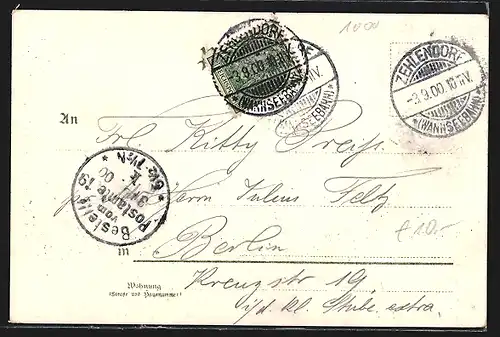 1000
ZEHLENDORF
-3.9.00.10-11V.
*(WANNSEEBAHN)*
ZEHLENDORF
-3.9.00.10-11V.
*(WANNSEEBAHN)*
An
Frl Kitty Preiss
Herrn Julius Feltz
Bestellt
vom
Postamte 19
3/9 00
Berlin
in
€ 10.-
Wohnung
(Strasse und Hausnummer)
Kreuzstr 19
Kl. Stube extra